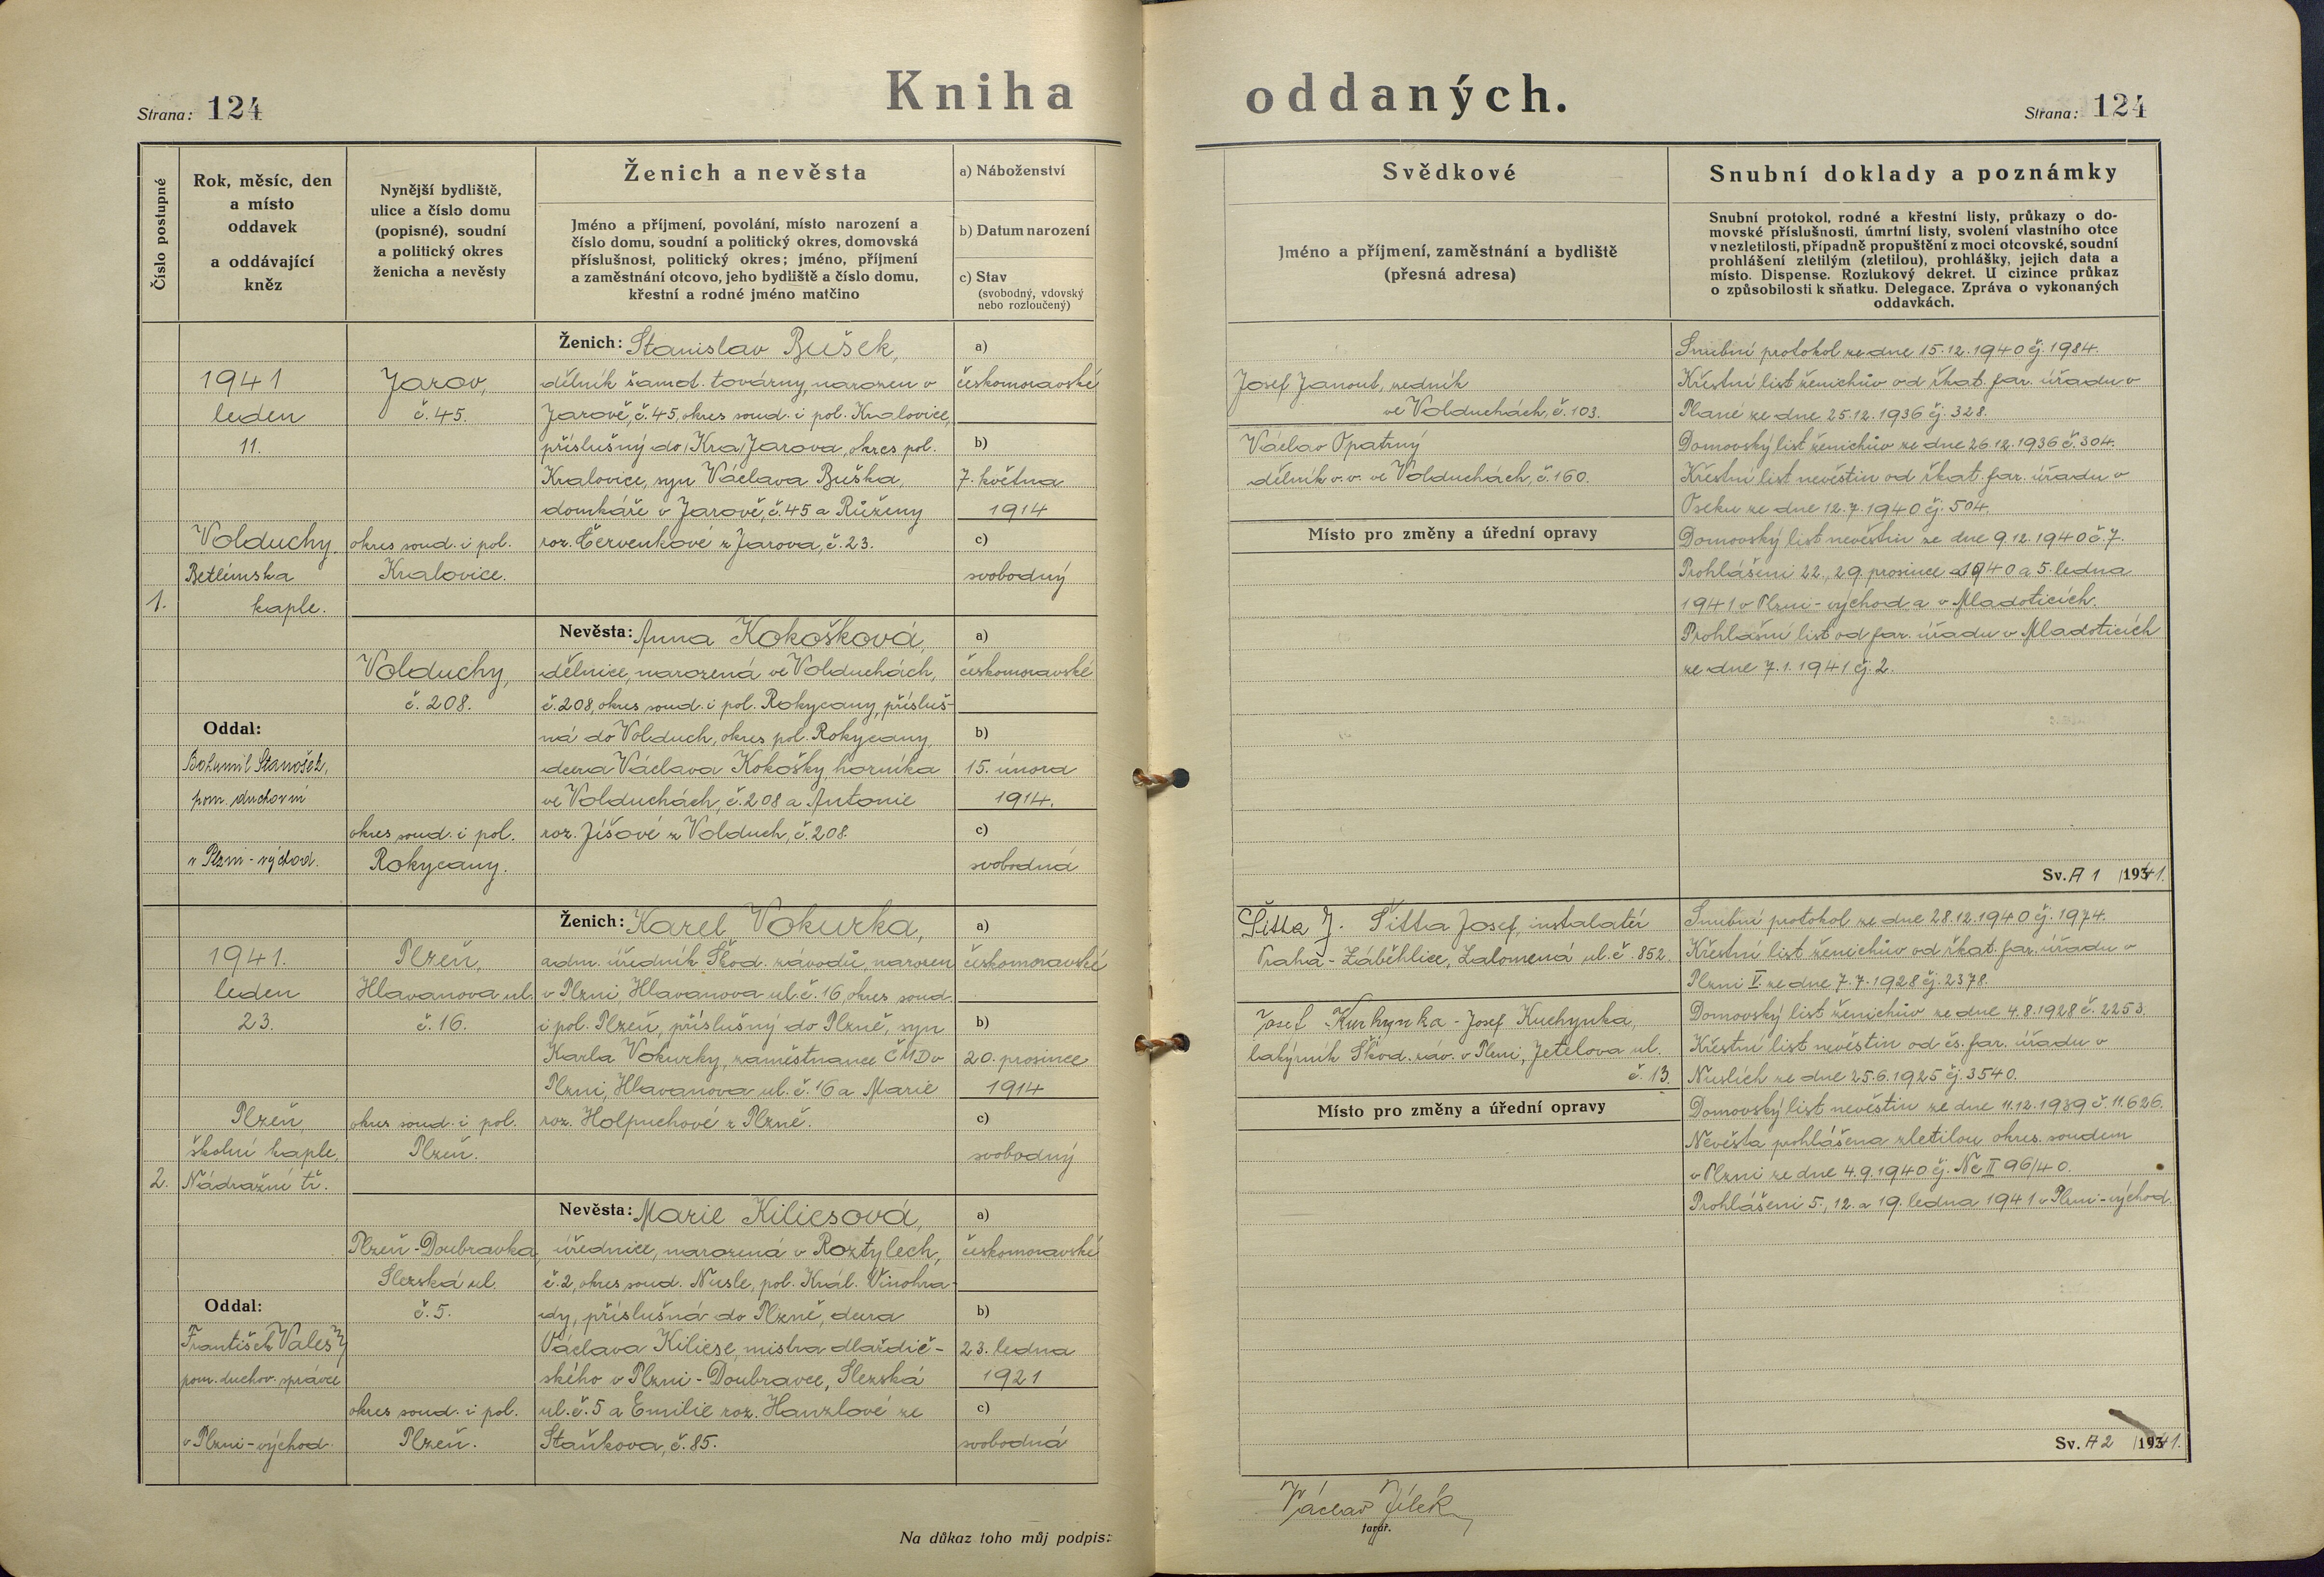 Kniha oddaných.
Strana: 124
Strana: 124
Číslo postupné
Rok, měsíc, den
a místo
oddavek
a oddávající
kněz
Nynější bydliště,
ulice a číslo domu
(popisné), soudní
a politický okres
ženicha a nevěsty
Ženich a nevěsta
Jméno a příjmení, povolání, místo narození a
číslo domu, soudní a politický okres, domovská
příslušnost, politický okres; jméno, příjmení
a zaměstnání otcovo, jeho bydliště a číslo domu,
křestní a rodné jméno matčino
a) Náboženství
b) Datum narození
c) Stav
(svobodný, vdovský
nebo rozloučený)
Svědkové
Jméno a příjmení, zaměstnání a bydliště
(přesná adresa)
Snubní doklady a poznámky
Snubní protokol, rodné a křestní listy, průkazy o do-
movské příslušnosti, úmrtní listy, svolení vlastního otce
v nezletilosti, případně propuštění z moci otcovské, soudní
prohlášení zletilým (zletilou), prohlášky, jejich data a
místo. Dispense. Rozlukový dekret. U cizince průkaz
o způsobilosti k sňatku. Delegace. Zpráva o vykonaných
oddavkách.
1.
1941
leden
11.
Volduchy
Betlémska
kaple.
Oddal:
Bohumil Stanošek,
pom. duchovní
v Plzni-východ.
Jarov,
č. 45.
okres soud. i pol.
Kralovice.
Volduchy,
č. 208.
okres soud. i pol.
Rokycany.
Ženich: Stanislav Bušek,
dělník šamot. továrny, narozen v
Jarově, č. 45, okres soud. i pol. Kralovice,
příslušný do (Kra) Jarova, okres pol.
Kralovice, syn Václava Buška,
domkáře v Jarově, č. 45 a Růženy
roz. Červenkové z Jarova, č. 23.
Nevěsta: Anna Kokošková,
dělnice, narozená ve Volduchách,
č. 208, okres soud. i pol. Rokycany, přísluš-
ná do Volduch, okres pol. Rokycany,
dcera Václava Kokošky, horníka
ve Volduchách, č. 208 a Antonie
roz. Jíšové z Volduch, č. 208.
a)
českomoravské
b)
7. května
1914
c)
svobodný
a)
českomoravské
b)
15. února
1914.
c)
svobodná
Josef Janout, zedník
ve Volduchách, č. 103.
Václav Opatrný
dělník v. v. ve Volduchách, č. 160.
Místo pro změny a úřední opravy
Snubní protokol ze dne 15.12.1940 čj. 1984.
Křestní list ženichův od řkat. far. úřadu v
Plané ze dne 25.12.1936 čj. 328.
Domovský list ženichův ze dne 26.12.1936 č. 304.
Křestní list nevěstin od řkat. far. úřadu v
Oseku ze dne 12.7.1940 čj. 504.
Domovský list nevěstin ze dne 9.12.1940 č. 7.
Prohlášeni 22., 29. prosince 1940 a 5. ledna
1941 v Plzni-východ a v Mladoticích.
Prohlašní list od far. úřadu v Mladoticích
ze dne 7.1.1941 čj. 2.
Sv. A 1 /1941.
2.
1941.
leden
23.
Plzeň
školní kaple,
Nádražní tř.
Oddal:
František Valeš
pom. duchov. správce
v Plzni-východ.
Plzeň,
Hlavanova ul.
č. 16.
okres soud. i pol.
Plzeň.
Plzeň-Doubravka,
Slezská ul.
č. 5.
okres soud. i pol.
Plzeň.
Ženich: Karel Vokurka,
adm. úředník Škod. závodů, narozen
v Plzni, Hlavanova ul. č. 16, okres soud.
i pol. Plzeň, příslušný do Plzně, syn
Karla Vokurky, zaměstnance ČMD v
Plzni, Hlavanova ul. č. 16 a Marie
roz. Holpuchové z Plzně.
Nevěsta: Marie Kiliesová,
úřednice, narozená v Roztylech,
č. 2, okres soud. Nusle, pol. Král. Vinohra-
dy, příslušná do Plzně, dcera
Václava Kiliese, mistra dlaždič-
ského v Plzni-Doubravce, Slezská
ul. č. 5 a Emilie roz. Hanzlové ze
Staňkova, č. 85.
a)
českomoravské
b)
20. prosince
1914
c)
svobodný
a)
českomoravské
b)
23. ledna
1921
c)
svobodná
Šitta J. Šitta Josef, instalatér
Praha-Záběhlice, Zalomená ul. č. 852.
Josef Kuchynka - Josef Kuchynka,
lakýrník Škod. záv. v Plzni, Jetelova ul.
č. 13.
Místo pro změny a úřední opravy
Snubní protokol ze dne 28.12.1940 čj. 1974.
Křestní list ženichův od řkat. far. úřadu v
Plzni V. ze dne 7.7.1928 čj. 2378.
Domovský list ženichův ze dne 4.8.1928 č. 2253.
Křestní list nevěstin od čs. far. úřadu v
Nuslích ze dne 25.6.1925 čj. 3540.
Domovský list nevěstin ze dne 11.12.1939 č. 11.626.
Nevěsta prohlášena zletilou okres. soudem
v Plzni ze dne 4.9.1940 čj. Nc II 96/40.
Prohlášeni 5., 12. a 19. ledna 1941 v Plzni-východ.
Sv. A 2 /1941.
Na důkaz toho můj podpis:
Václav Jílek
farář.